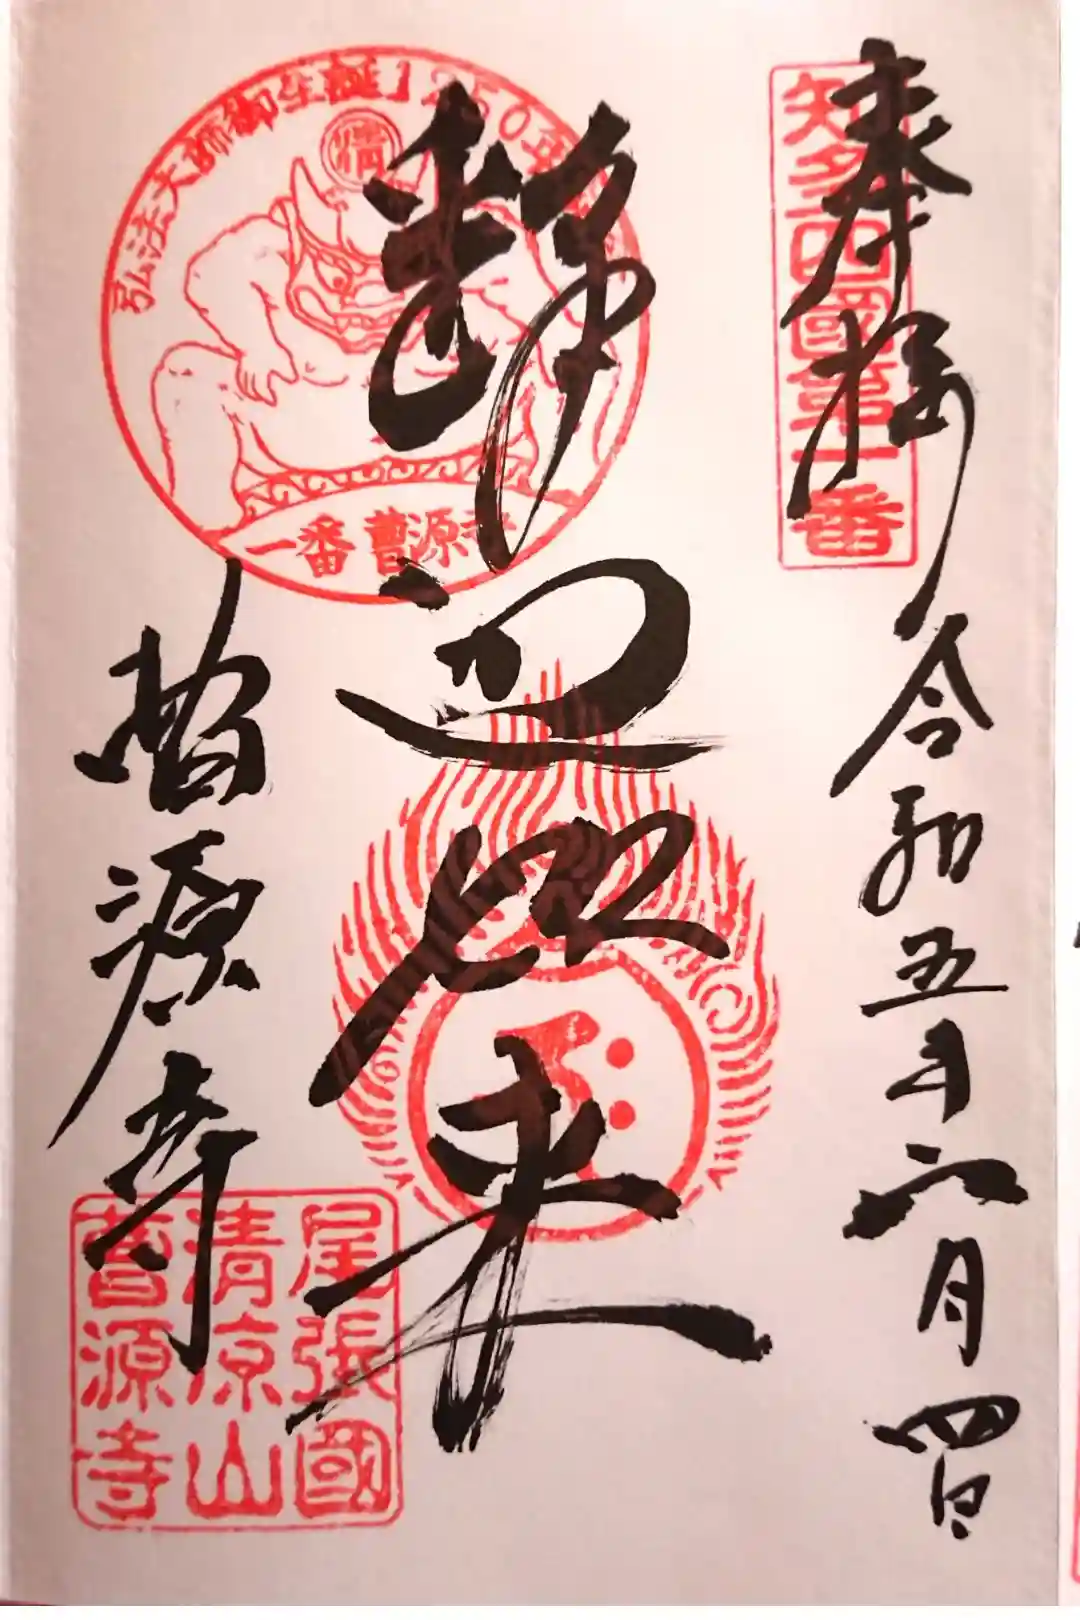 奉拝
知多四國第一番
令和五年六月四日
釋迦如来
弘法大師御生誕1250年
清
一番 曹源寺
曹源寺
尾張國
清涼山
曹源寺